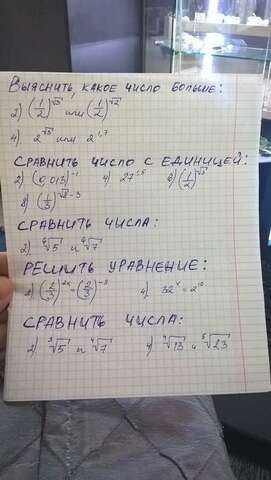 Выяснить, какое число больше:
2) (1/2)^√3 или (1/2)^√2
4) 2^√3 или 2^1,7
Сравнить число с единицей:
2) (0,013)^-1 4) 27^1,5 6) (1/2)^√3
8) (1/3)^√8-3
Сравнить числа:
2) √5 и √7
Решить уравнение:
2) (2/3)^2x = (2/3)^-3 4) 32^x = 2^10
Сравнить числа:
2) ³√5 и ⁴√7 4) ⁴√13 и ⁵√23